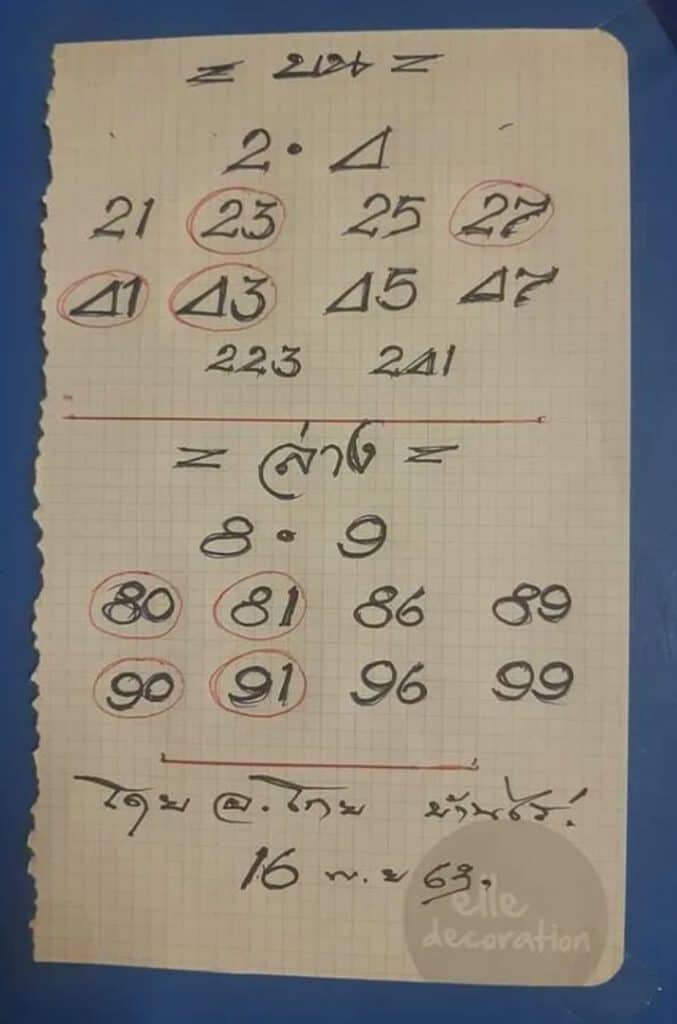 = บน =
2 • 4
21 23 25 27
41 43 45 47
223 241
= ล่าง =
8 • 9
80 81 86 89
90 91 96 99
โดย อ.โกย บ้านไร่.
16 พ.ย 63.
elle
decoration